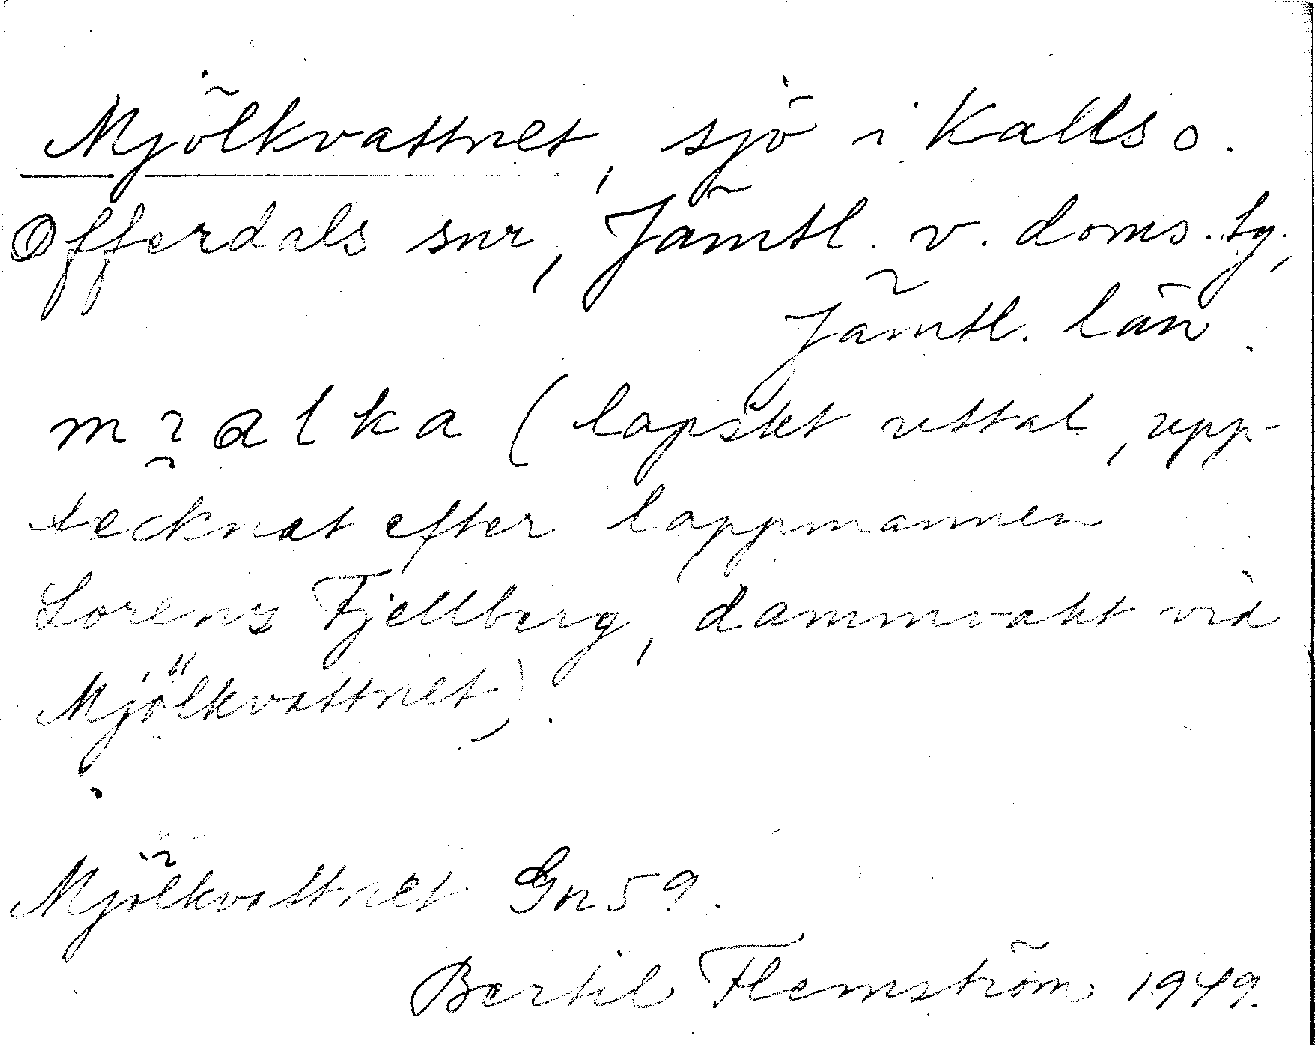 Mjölkvattnet, sjö i Kalls o.
Offerdals snr, Jämtl. v. doms.tg,
Jämtl. län.
malka (lapskt uttal, upp-
tecknat efter lappmannen
Lorens Fjellberg, dammvakt vid
Mjölkvattnet).
Mjölkvattnet Gn 59.
Bertil Flemström 1949.